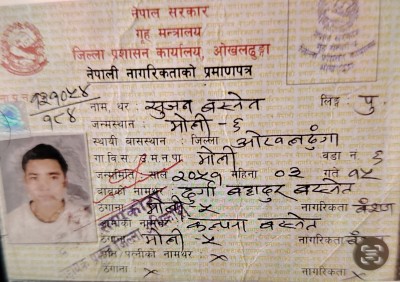 नेपाल सरकार
गृह मन्त्रालय
जिल्ला प्रशासन कार्यालय, ओखलढुङ्गा
नेपाली नागरिकताको प्रमाणपत्र
१८४
नाम, थर : सुजन बस्नेत लिङ्ग पु.
जन्मस्थान : मोली - ६
स्थायी बासस्थान : जिल्ला ओखलढुंगा
गा.वि.स. मोली वडा नं. ६
जन्ममिति साल २०५१ महिना ०३ गते १५
बाबुको नाम थर : दुर्गा बहादुर बस्नेत
ठेगाना मोली ५ नागरिकता वंशज
आमाको नाम थर : कल्पना बस्नेत
ठेगाना मोली - ५ नागरिकता
पत्नीको नामथर : ×
ठेगाना × नागरिकता ×